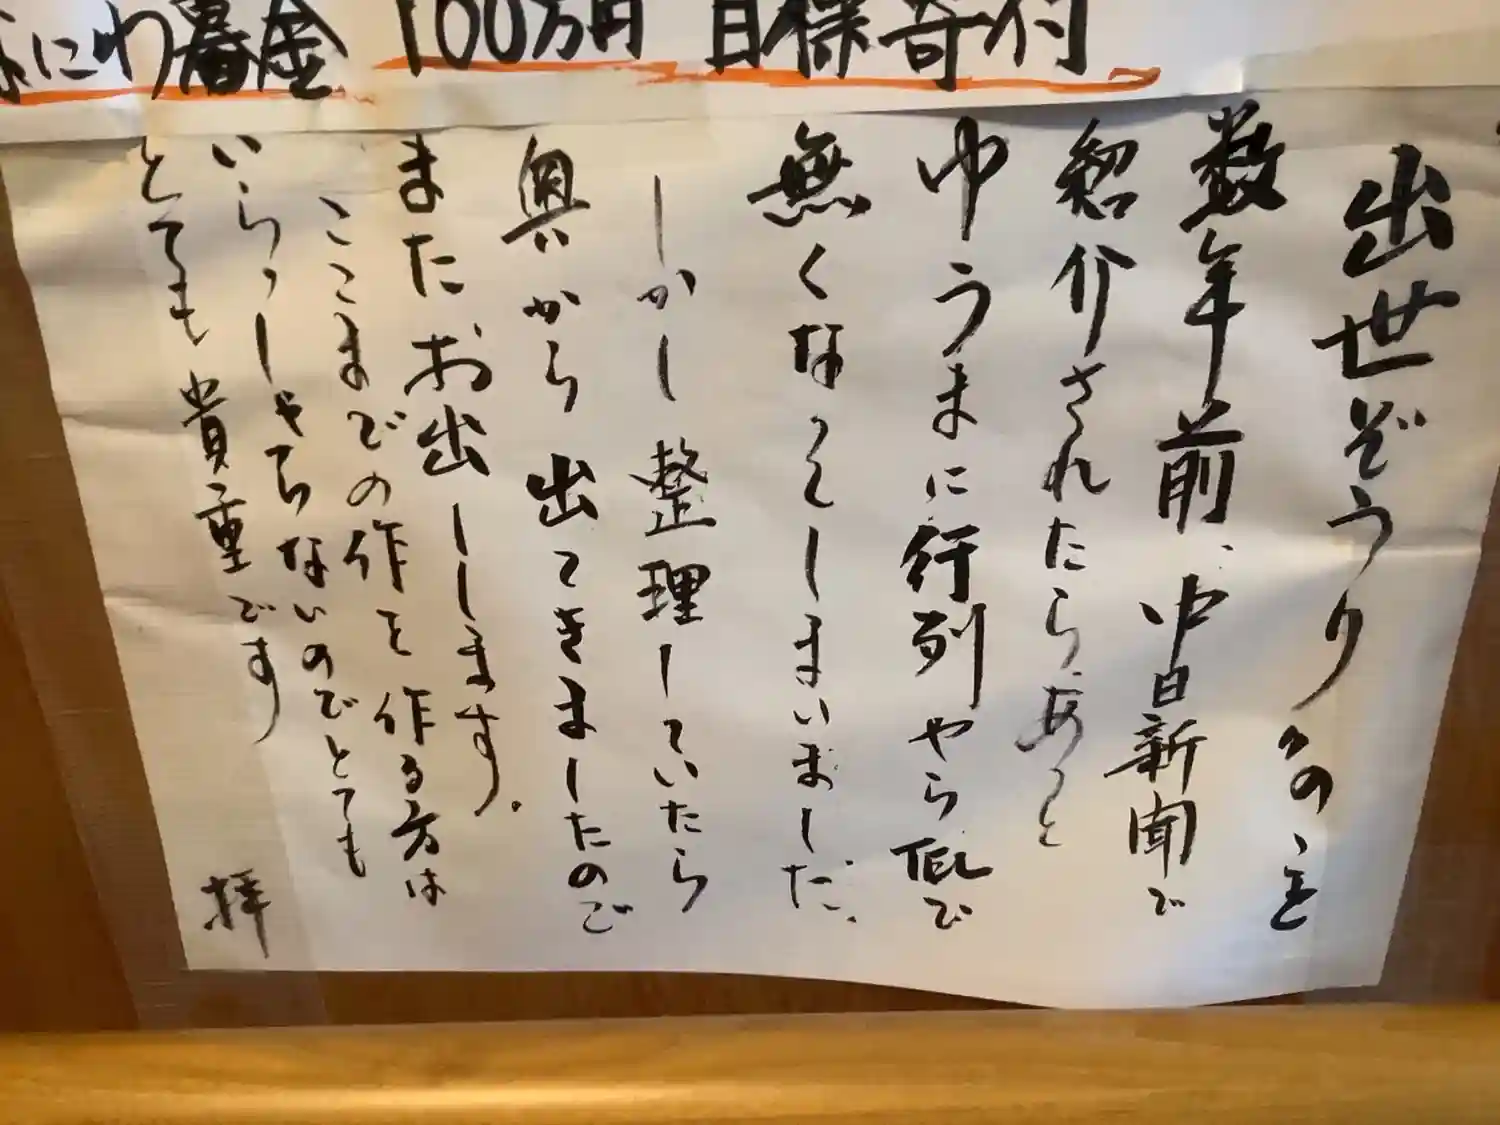 にわ募金 100万円 目標寄付
出世ぞうりのこと
数年前、中日新聞で
紹介されたら、あっと
ゆうまに行列やらTELで
無くなってしまいました、
しかし整理していたら
奥から出てきましたのご
またお出しします。
ここまでの作を作る方は
いらっしゃらないのでとても
とても貴重です
拝